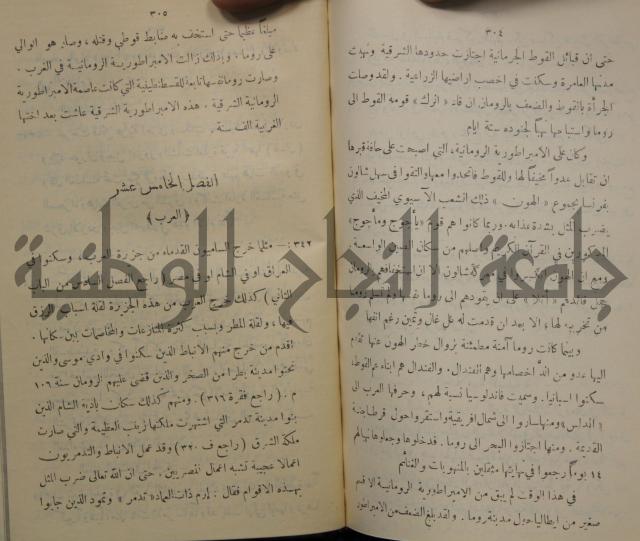 ٣٠٤
حتى ان قبائل القوط الجرمانية اجتازت حدودها الشرقية ونهبت
مدنها العامرة وسكنت في اخصب اراضيها الزراعية . ولقد وصلت
الجرأة بالقوط والضعف بالرومان ان قاد « الرك » قومه القوط الى
روما واستباحها نهباً لجنوده ستة ايام
وكان على الامبراطورية الرومانية، التي اصبحت على حافة قبرها
ان تقابل عدواً مخيفاً لها وللقوط فاتحدوا معها والتقوا في سهل شالون
بفرنسا بجموع « الهون » ذلك الشعب الآسيوي المخيف الذي
يضرب المثل بشدة عذابه، وربما كانوا هم قوم « يأجوج ومأجوج»
المذكورين في القرآن الكريم واصلهم من سكان الصين الواسعة.
ومع ان الهون انكسروا في معركة شالون الا ان
قائدهم « أتلا » على ان يقودهم الى روما نفسها
من تخريبه لها، الا بعد ان قدمت له على غال وثمين رغم انفها
وبينما كانت روما آمنة مطمئنة بزوال خطر الهون عنها تقدم
اليها عدو من الدّ اخصامها وهم الفندال . والفندال هم ابناء عم القوط،
سكنوا اسبانيا . وسميت فاندلوسيا نسبة لهم ، وحرفها العرب الى
« اندلس » ومنها ساروا الى شمال افريقية واستقروا حول قرطاجنة
القديمة . ومنها اجتازوا البحر الى روما . فدخلوها وجعلوها نهباً لهم
١٤ يوماً رجعوا في نهايتها مثقلين بالمنهوبات والغنائم
في هذا الوقت لم يبق من الامبراطورية الرومانية الا قسم
صغير من ايطاليا حول مدينة روما . ولقد بلغ الضعف من الامبراطور
٣٠٥
مبلغاً عظيماً حتى استخف به ضابط قوطي وقتله ، وصار هو الوالي
على روما . وبذلك زالت الامبراطورية الرومانية في الغرب .
وصارت روما نفسها تابعة للقسطنطينية التي كانت عاصمة الامبراطورية
الرومانية الشرقية . هذه الامبراطورية الشرقية عاشت بعد اختها
الغربية الف سنة .
الفصل الخامس عشر
(العرب)
٣٤٢ :— مثلما خرج الساميون القدماء من جزيرة العرب ، وسكنوا في
العراق او في الشام او في مصر ( راجع الفصل السادس من الباب
الثاني ) كذلك خرج العرب من هذه الجزيرة لقلة اسباب الرزق
فيها ، ولقلة المطر وبسبب كثرة المنازعات والمخاصمات بين سكانها .
اقدم من خرج منهم الانباط الذين سكنوا في وادي موسى والذين
نحتوا مدينة بطرا من الصخر والذين قضى عليهم الرومان سنة ١٠٦
م . ( راجع فقرة ٣١٦ ) . ومنهم كذلك سكان بادية الشام الذين
بنوا مدينة تدمر التي اشتهرت ملكتها زينب العظيمة والتي صارت
ملكة الشرق ( راجع ف ٣٢٠ ) وقد عمل الانباط والتدمريون
اعمالا عجيبة تشبه اعمال نقصريين . حتى ان الله تعالى ضرب المثل
بهذه الاقوام فقال : إرم ذات العماد« تدمر » وثمود الذين جابوا
جامعة النجاح الوطنية